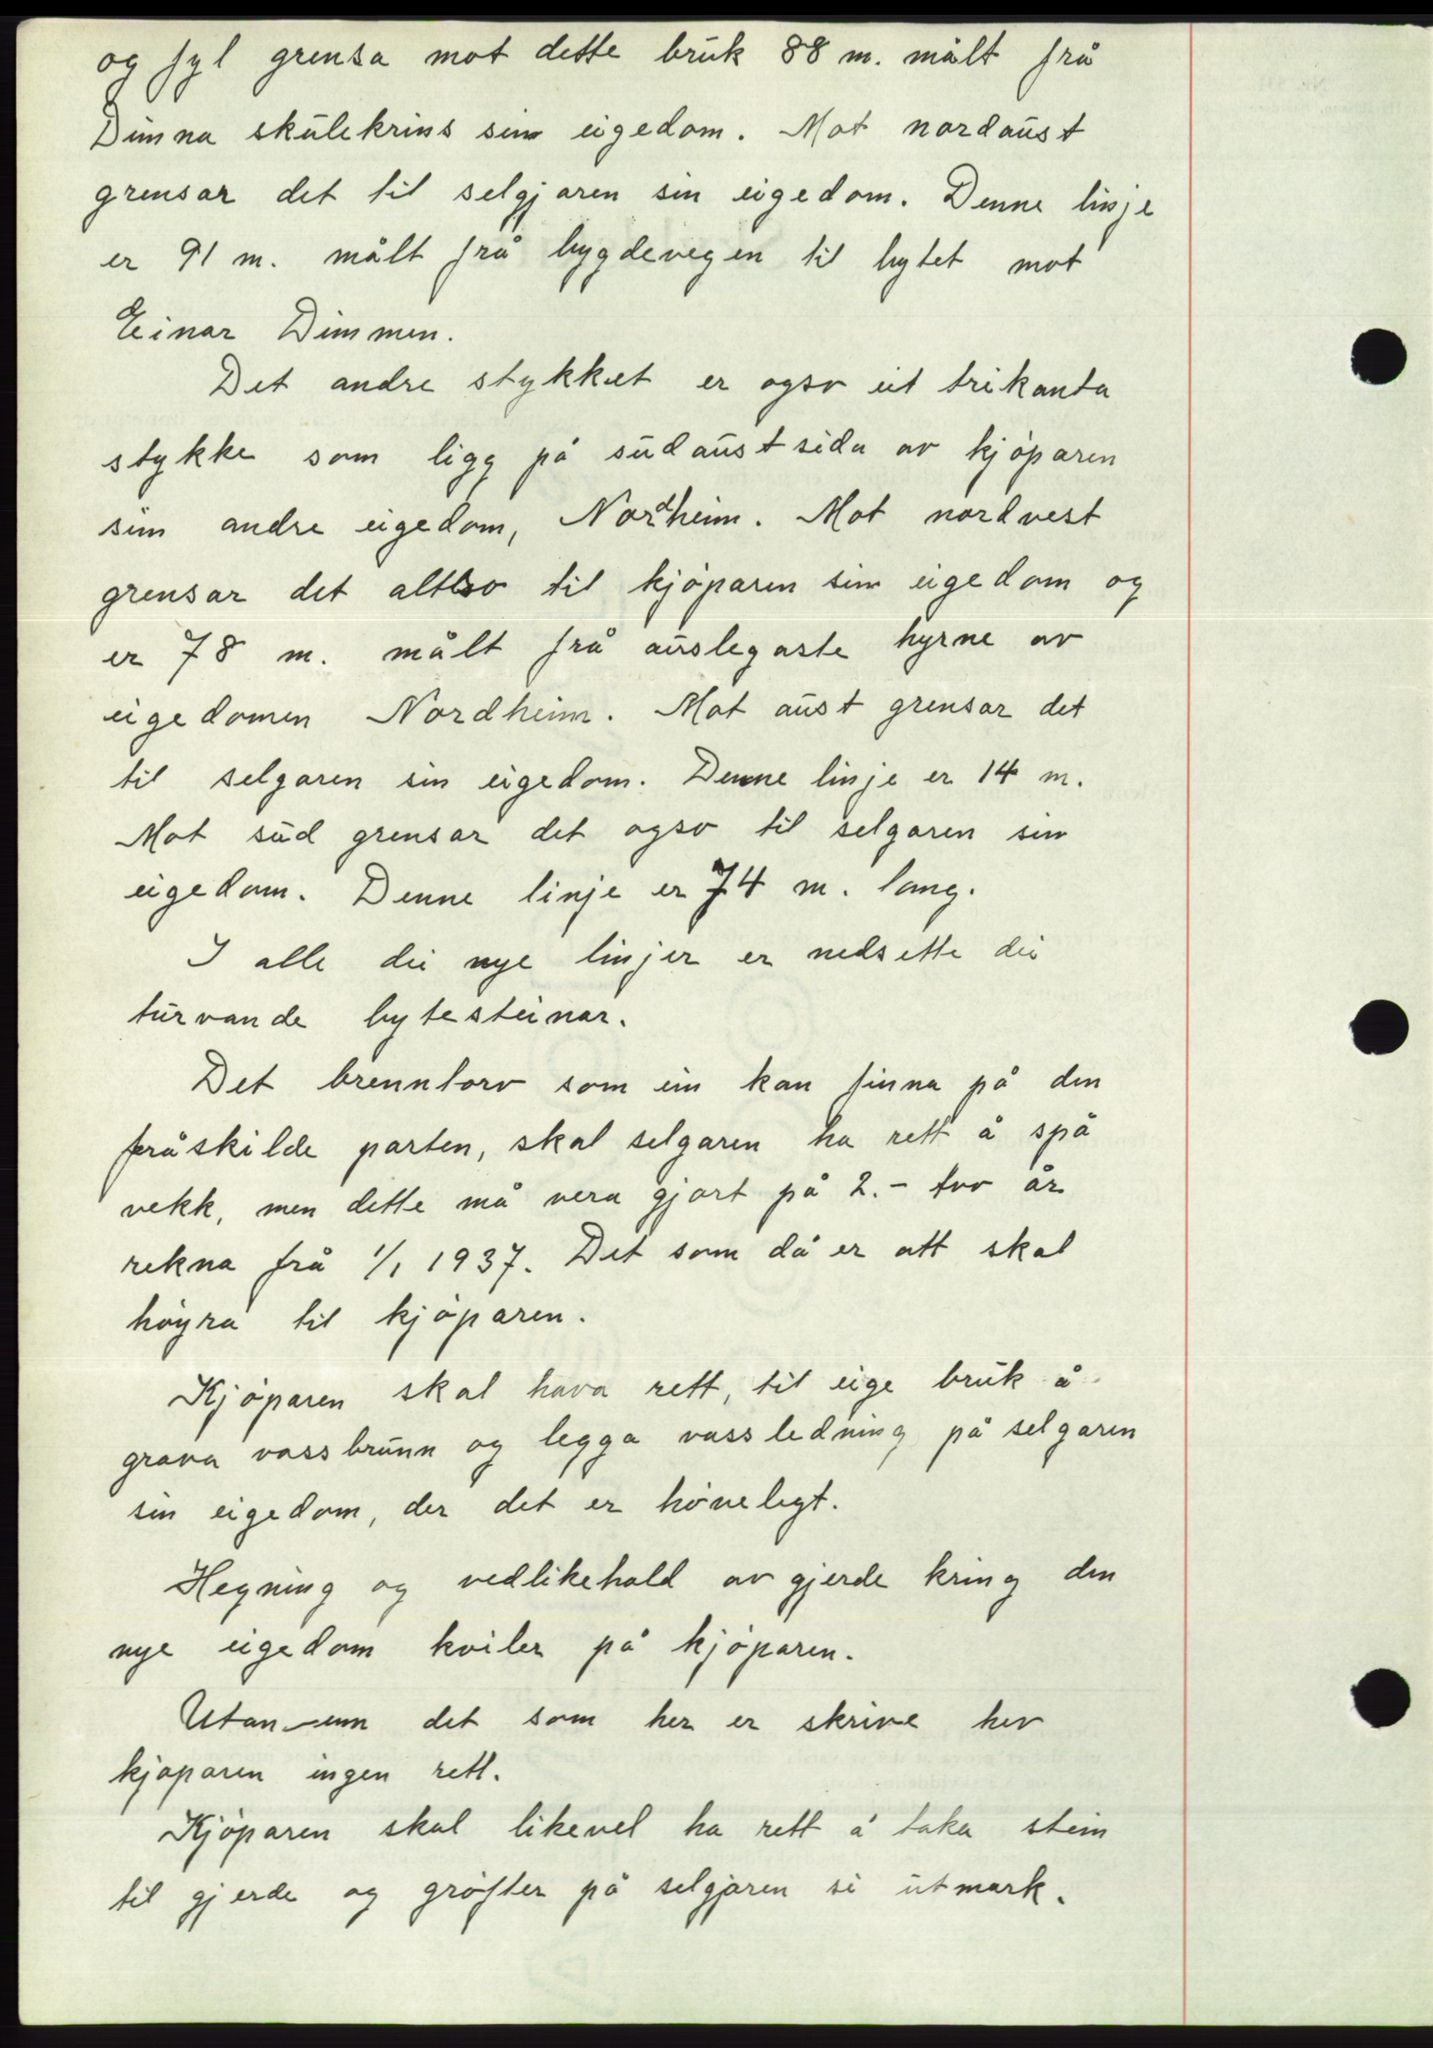 og fyl grensa mot dette bruk 88 m. målt frå
Dimna skulekrins sin eigedom. Mot nordaust
grensar det til selgjaren sin eigedom. Denne linje
er 91 m. målt frå bygdevegen til bytet mot
Einar Dimmen.
Det andre stykket er ogso eit trikanta
stykke som ligg på sudaustsida av kjöparen
sin andre eigedom, Nordheim. Mot nordvest
grensar det altso til kjöparen sin eigedom og
er 78 m. målt frå auslegaste hyrne av
eigedomen Nordheim. Mot aust grensar det
til selgaren sin eigedom. Denne linje er 14 m.
Mot sud grensar det ogso til selgaren sin
eigedom. Denne linje er 74 m. lang.
I alle dei nye linjer er nedsette dei
turvande bytesteinar.
Det brenntorv som ein kan finna på den
fråskilde parten, skal selgaren ha rett å spå
vekk, men dette må vera gjort på 2.- tvo år
rekna frå 1/1 1937. Det som då er att skal
höyra til kjöparen.
Kjöparen skal hava rett, til eige bruk å
grava vassbrunn og legga vassledning på selgaren
sin eigedom, der det er höveligt.
Hegning og vedlikehald av gjerde kring den
nye eigedom kviler på kjöparen.
Utan-enn det som her er skrive hev
kjöparen ingen rett.
Kjöparen skal likevel ha rett å taka stein
til gjerde og gröfter på selgjaren si utmark.